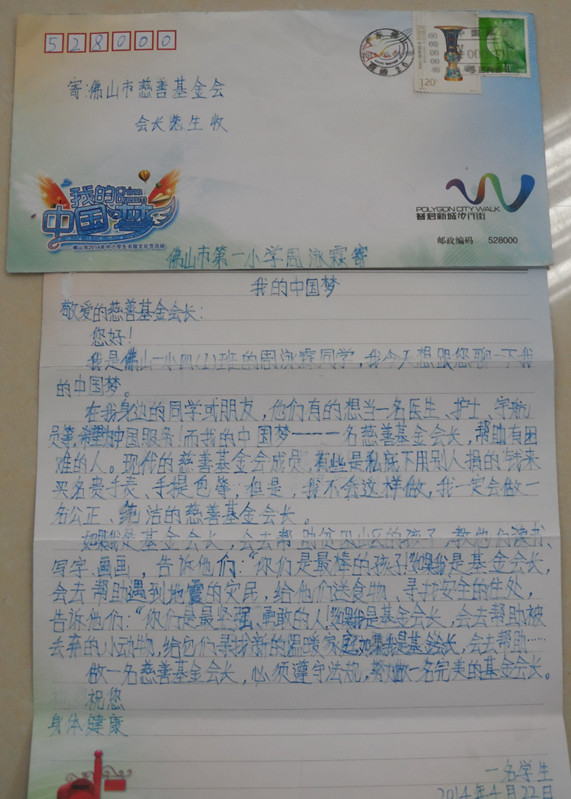 528000
1.20
寄:佛山市慈善基金会
会长先生收
我的
中国梦
POLYGON CITY WALK
邮政编码 528000
佛山市第一小学周泳霖寄
我的中国梦
敬爱的慈善基金会长:
您好!
我是佛山一小四(1)班的周泳霖同学,我今天想跟您聊一下我
的中国梦。
在我身边的同学或朋友,他们有的想当一名医生、护士、宇航
员等希望为中国服务!而我的中国梦————名慈善基金会长,帮助有困
难的人。现代的慈善基金会成员,有些是私底下用别人捐的钱来
买名贵手表、手提包等,但是,我不会这样做,我一定会做一
名公正、纯洁的慈善基金会长。
如果我是基金会长,会去帮助贫困山区的孩子,教他们读书、
写字、画画,告诉他们:“你们是最棒的孩子!如果我是基金会长,
会去帮助遇到地震的灾民,给他们送食物、寻找安全的住处,
告诉他们:“你们是最坚强、勇敢的人!如果我是基金会长,会去帮助被
丢弃的小动物,给它们寻找新的温暖家庭如果我是基金会长,会去帮助……
做一名慈善基金会长,必须遵守法规,努力做一名完美的基金会长。
祝您
身体健康
一名学生
2014年4月22日